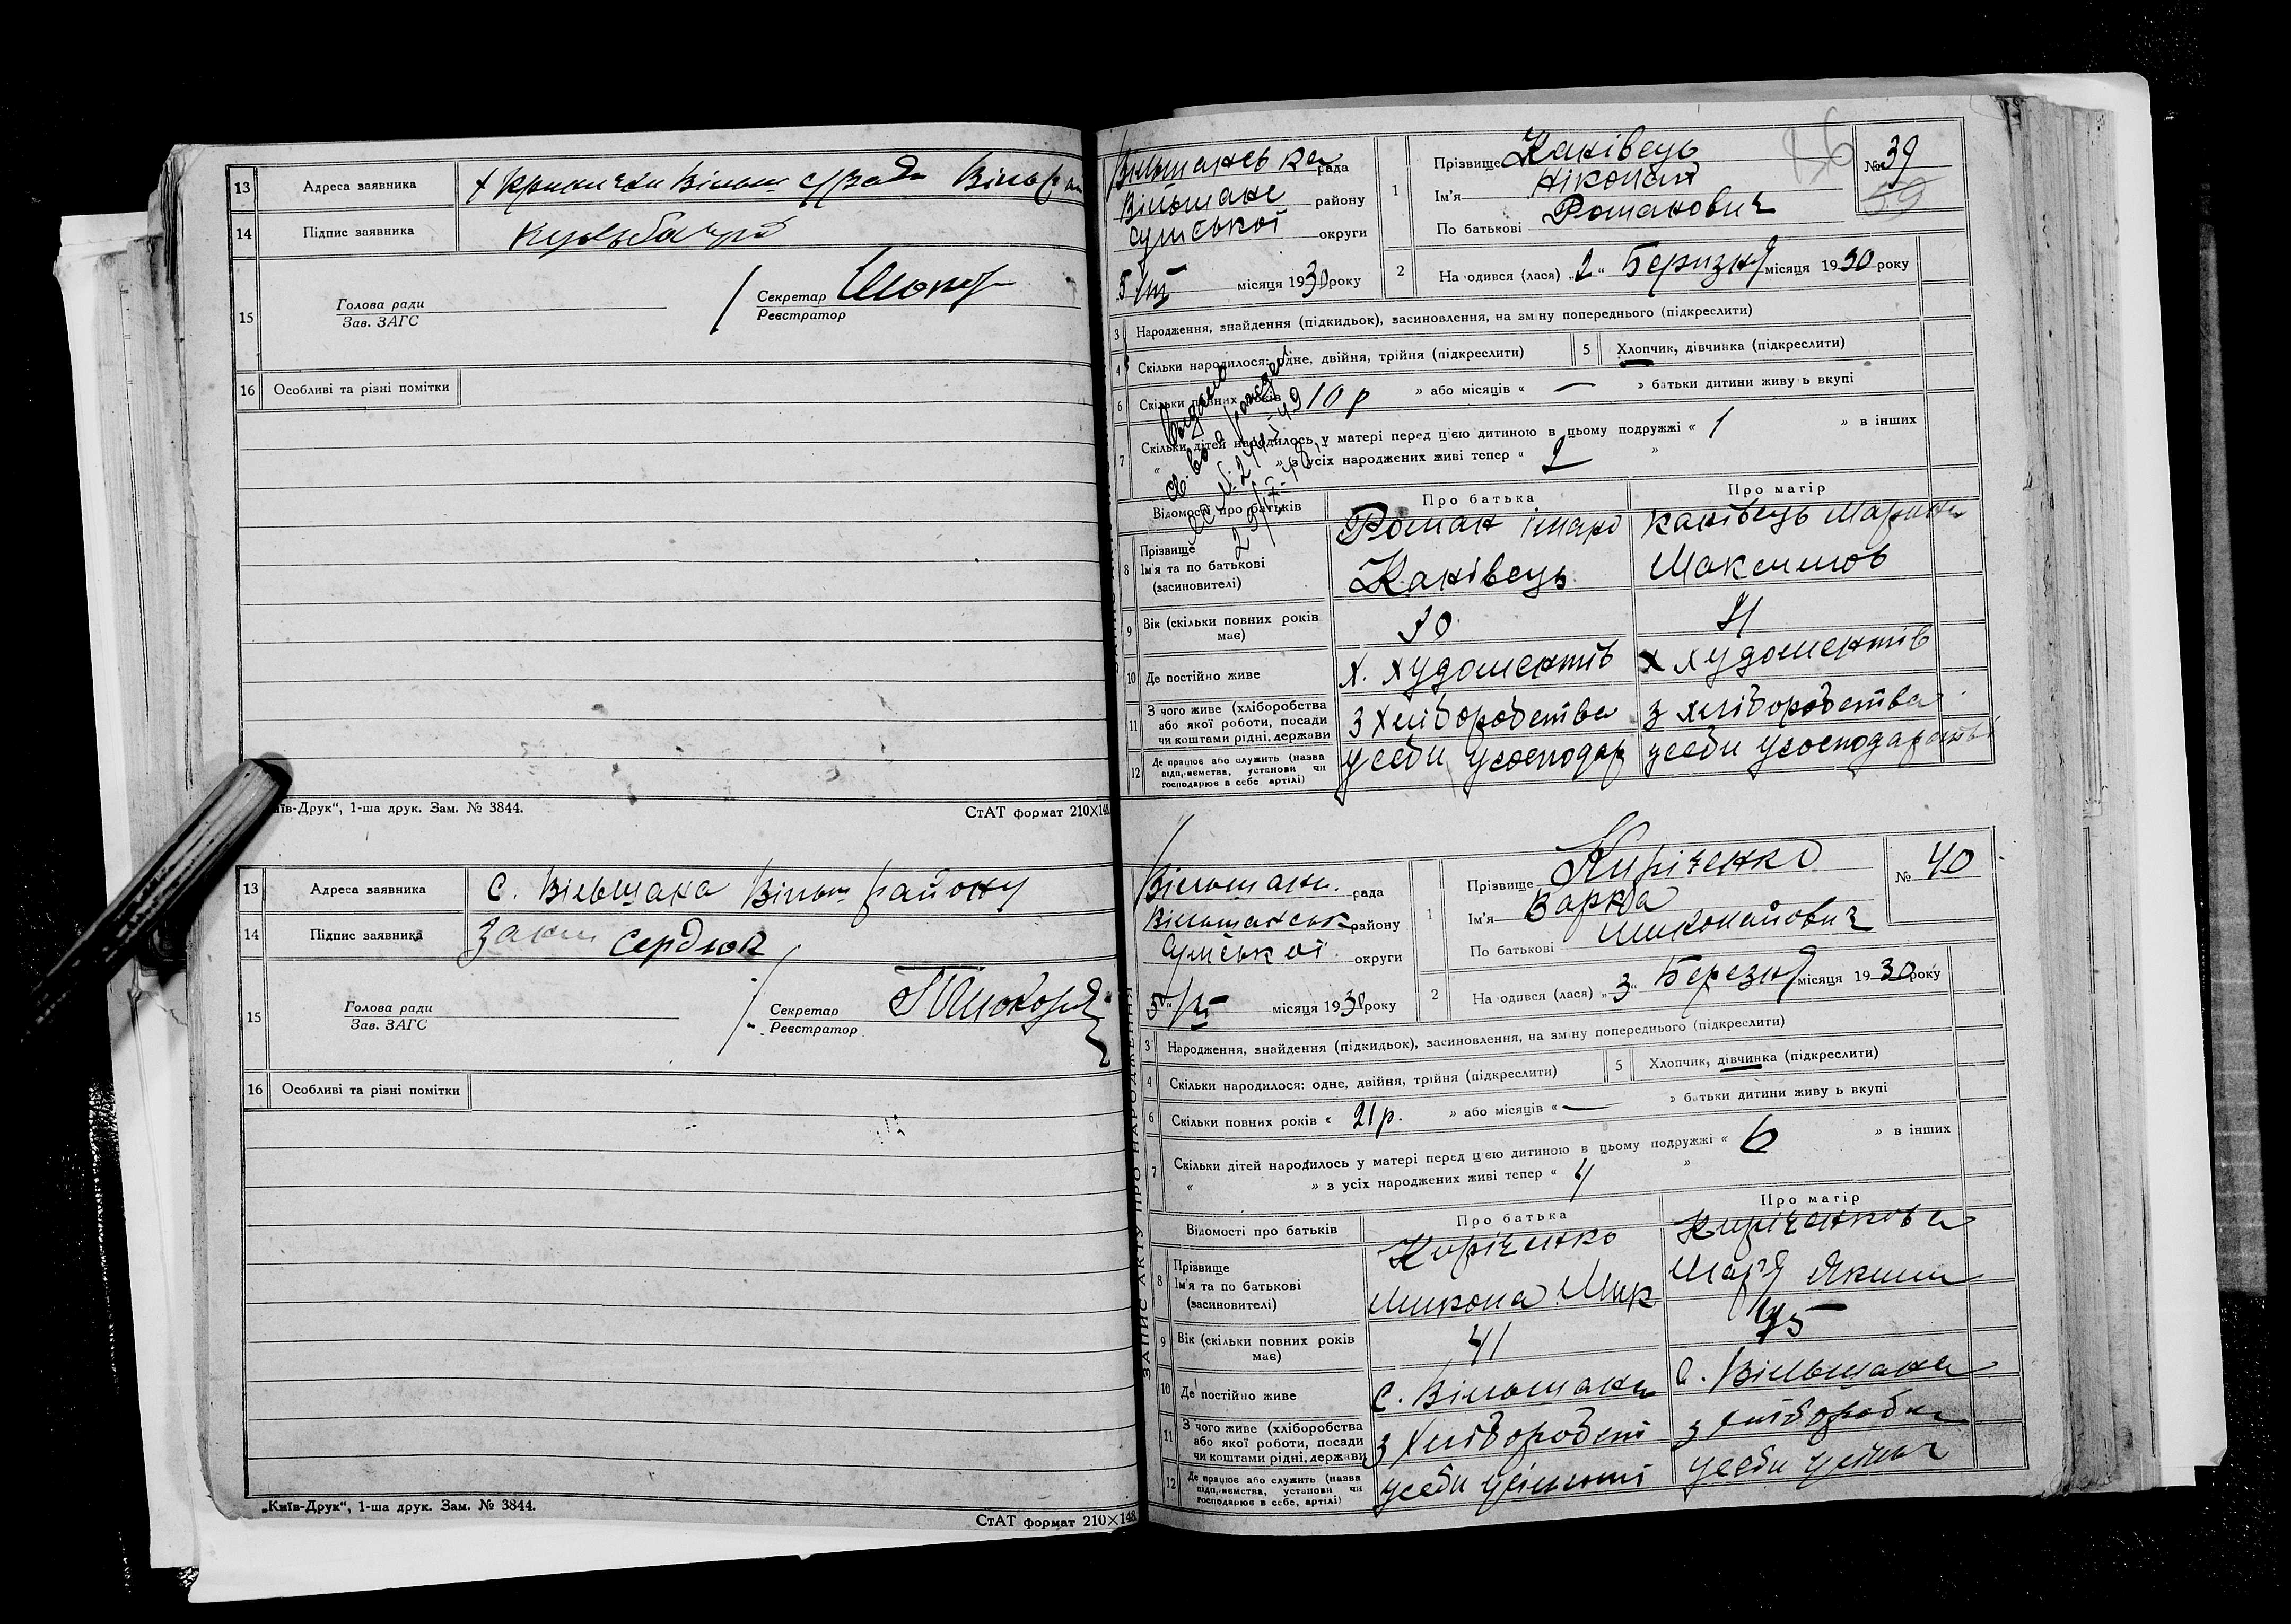 13 Адреса заявника х Кринички Вільш с/Ради
14 Підпис заявника
15 Голова ради
Зав. ЗАГС
Секретар
Реєстратор
16 Особливі та різні помітки
їв-Друк“, 1-ша друк. Зам. № 3844.
СтАТ формат 210×148
13 Адреса заявника с. Вільшана Вільш району
14 Підпис заявника Сердюк
15 Голова ради
Зав. ЗАГС
Секретар
Реєстратор
16 Особливі та різні помітки
„Київ-Друк“, 1-ша друк. Зам. № 3844.
СтАТ формат 210×148
Вільшанська рада
Вільшанс району
Сумської округи
5 III місяця 1930 року
1 Прізвище Канівець
Ім'я Ніколай
По батькові Романович
№ 39
39
2 На одився (лася) „2“ Беризня місяця 1930 року
3 Народження, знайдення (підкидьок), засиновлення, на зміну попереднього (підкреслити)
4 Скільки народилося: одне, двійня, трійня (підкреслити)
5 Хлопчик, дівчинка (підкреслити)
6 Скільки повних років 10 р » або місяців « — » батьки дитини живу ь вкупі
7 Скільки дітей народилось у матері перед цією дитиною в цьому подружжі « 1 » в інших
« » з усіх народжених живі тепер « 2 »
Відомості про батьків
Про батька
Про матір
8 Прізвище
Ім'я та по батькові
(засиновителі)
Роман
Канівець
Канівець Марина
Максимов
9 Вік (скільки повних років має)
30
31
10 Де постійно живе
х. Худоментів
х Худоментів
11 З чого живе (хліборобства
або якої роботи, посади
чи коштами рідні, держави
З хліборобства
з хліборобства
12 Де працює або служить (назва
підприємства, установи чи
господарює в себе артілі)
у себи у господар
у себи у господарстві
ЗАПИС АКТУ ПРО НАРОДЖЕННЯ
Вільшан. рада
Вільшанськ району
Сумської округи
5“ III місяця 1930 року
1 Прізвище Киріченко
Ім'я Варка
По батькові Миколайович
№ 40
2 На одився (лася) „3“ Березня місяця 1930 року
3 Народження, знайдення (підкидьок), засиновлення, на зміну попереднього (підкреслити)
4 Скільки народилося: одне, двійня, трійня (підкреслити)
5 Хлопчик, дівчинка (підкреслити)
6 Скільки повних років « 21 р. » або місяців « — » батьки дитини живу ь вкупі
7 Скільки дітей народилось у матері перед цією дитиною в цьому подружжі « 6 » в інших
« » з усіх народжених живі тепер « 4 »
Відомості про батьків
Про батька
Про матір
8 Прізвище
Ім'я та по батькові
(засиновителі)
Киріченко
Микола Мик
Киріченкова
Мар'я Яким
9 Вік (скільки повних років має)
41
45
10 Де постійно живе
с. Вільшана
с. Вільшана
11 З чого живе (хліборобства
або якої роботи, посади
чи коштами рідні, держави
з хліборобст
з хлібороб
12 Де працює або служить (назва
підприємства, установи чи
господарює в себе, артілі)
у себи
у себи